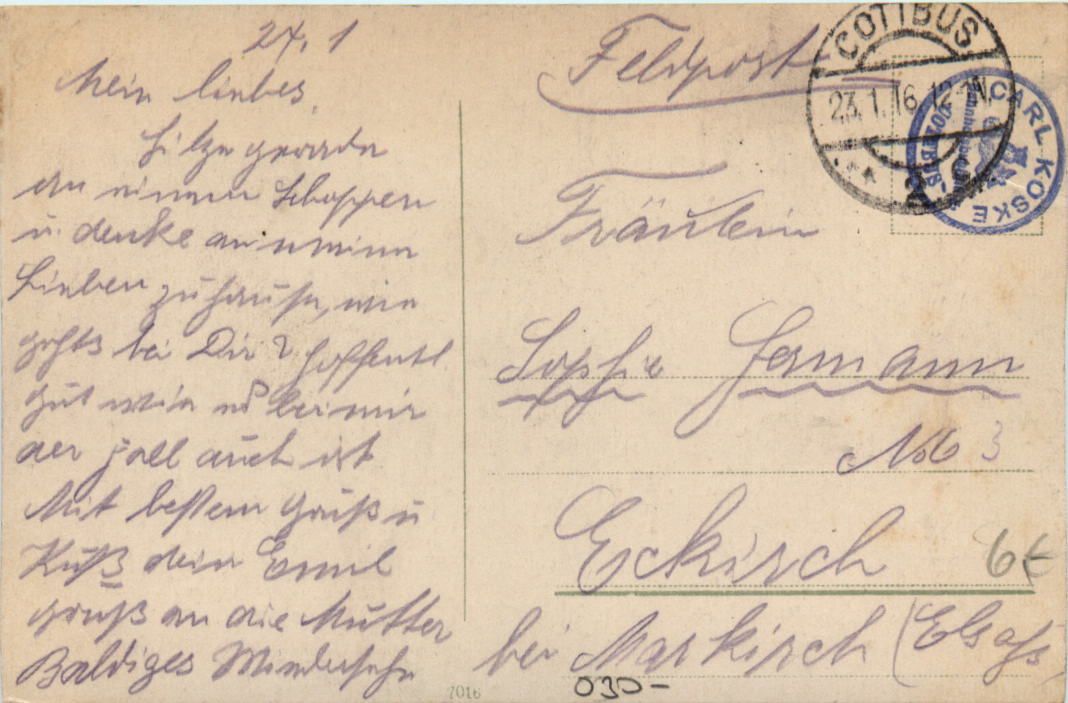 24.1
Mein liebes
Sitze gerade
an einem Schoppen
u. denke an meine
Lieben zuhause, wie
gehts bei Dir? hoffentl
gut wie es bei mir
der fall auch ist
Mit bestem Gruß u
Kuß dein Emil
gruß an die Mutter
Baldiges Wiedersehn
7016
Feldpost
COTTBUS
23.1.16.12-1N.
* * 2
CARL KOSKE
COTTBUS
Fräulein
Sophie Germann
No 3
Eckirch
6€
bei Markirch (Elsaß)
030-